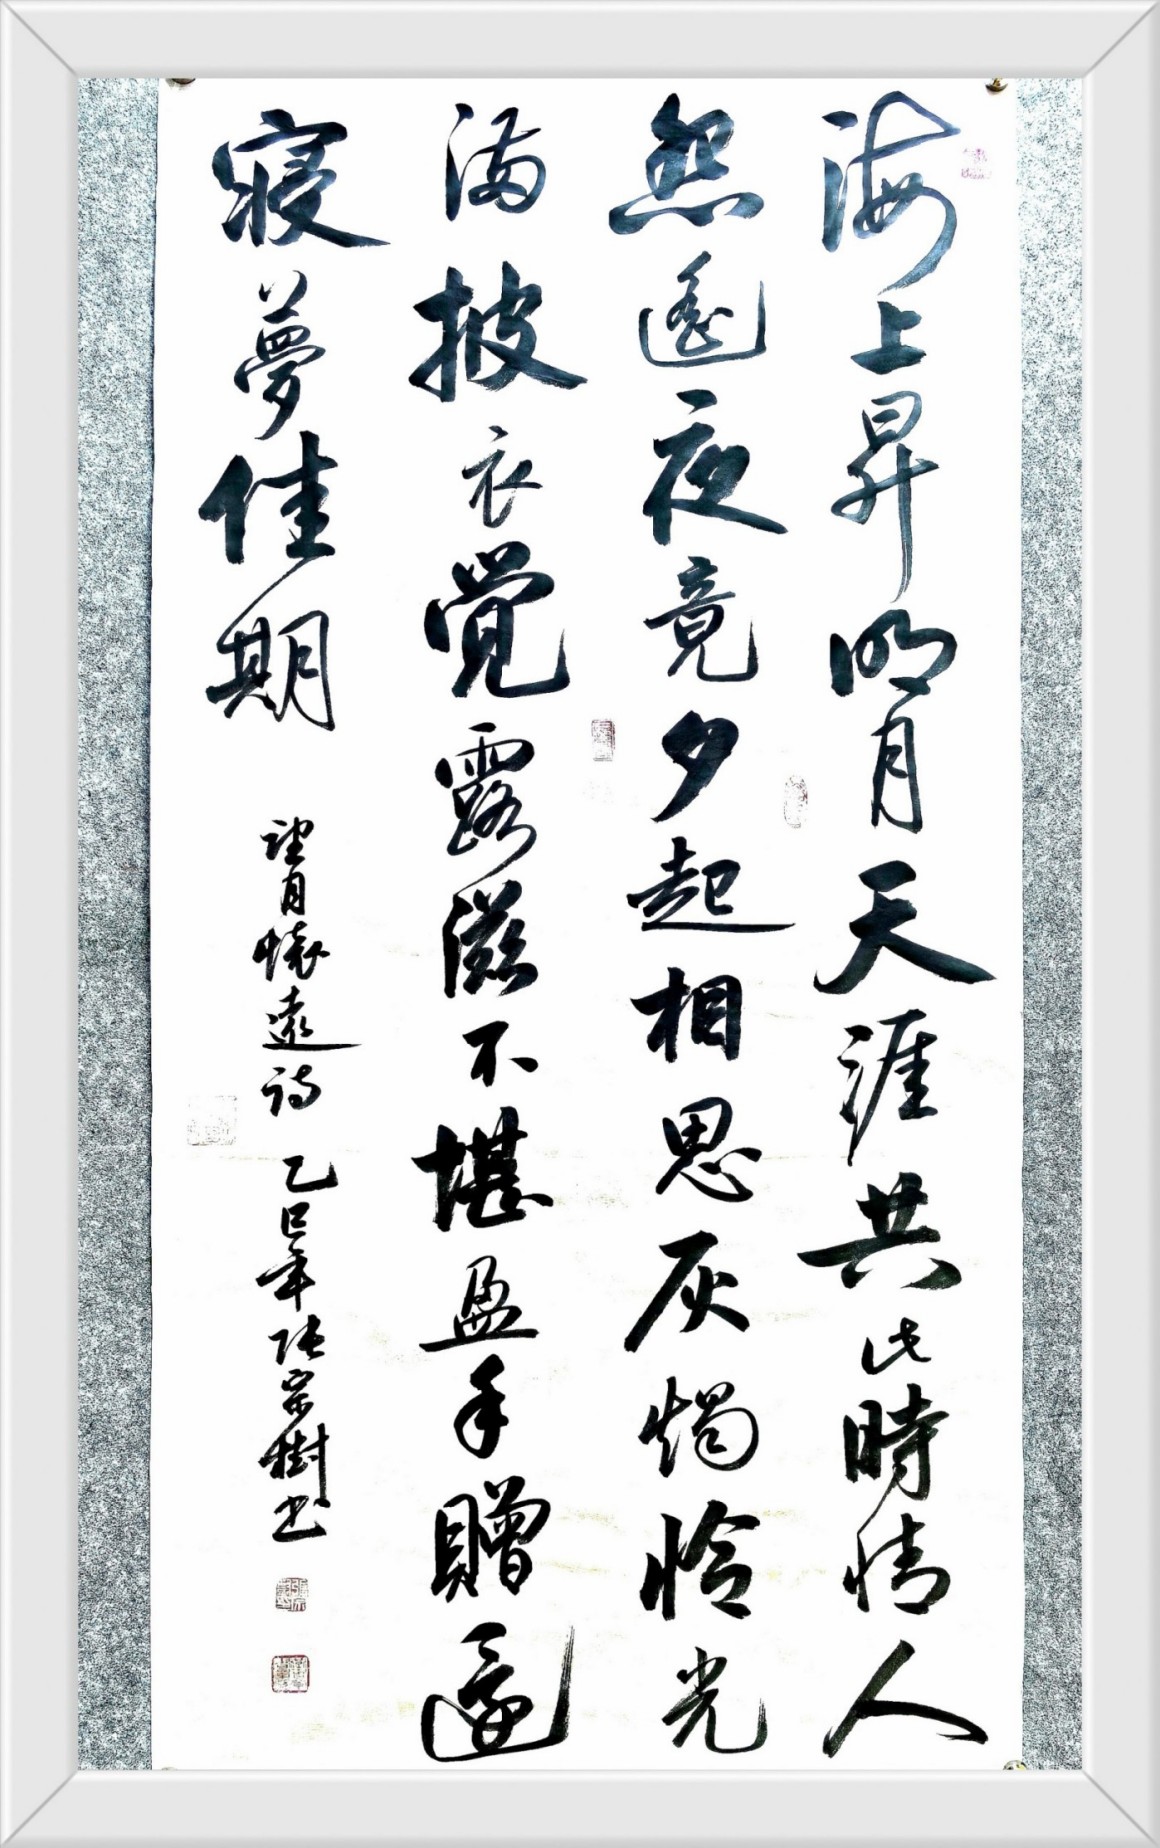 海上昇明月天涯共此時情人
怨遙夜竟夕起相思灰燭怜光
滿披衣覺露滋不堪盈手贈還
寢夢佳期
望月懷遠詩 乙巳年張宗樹書